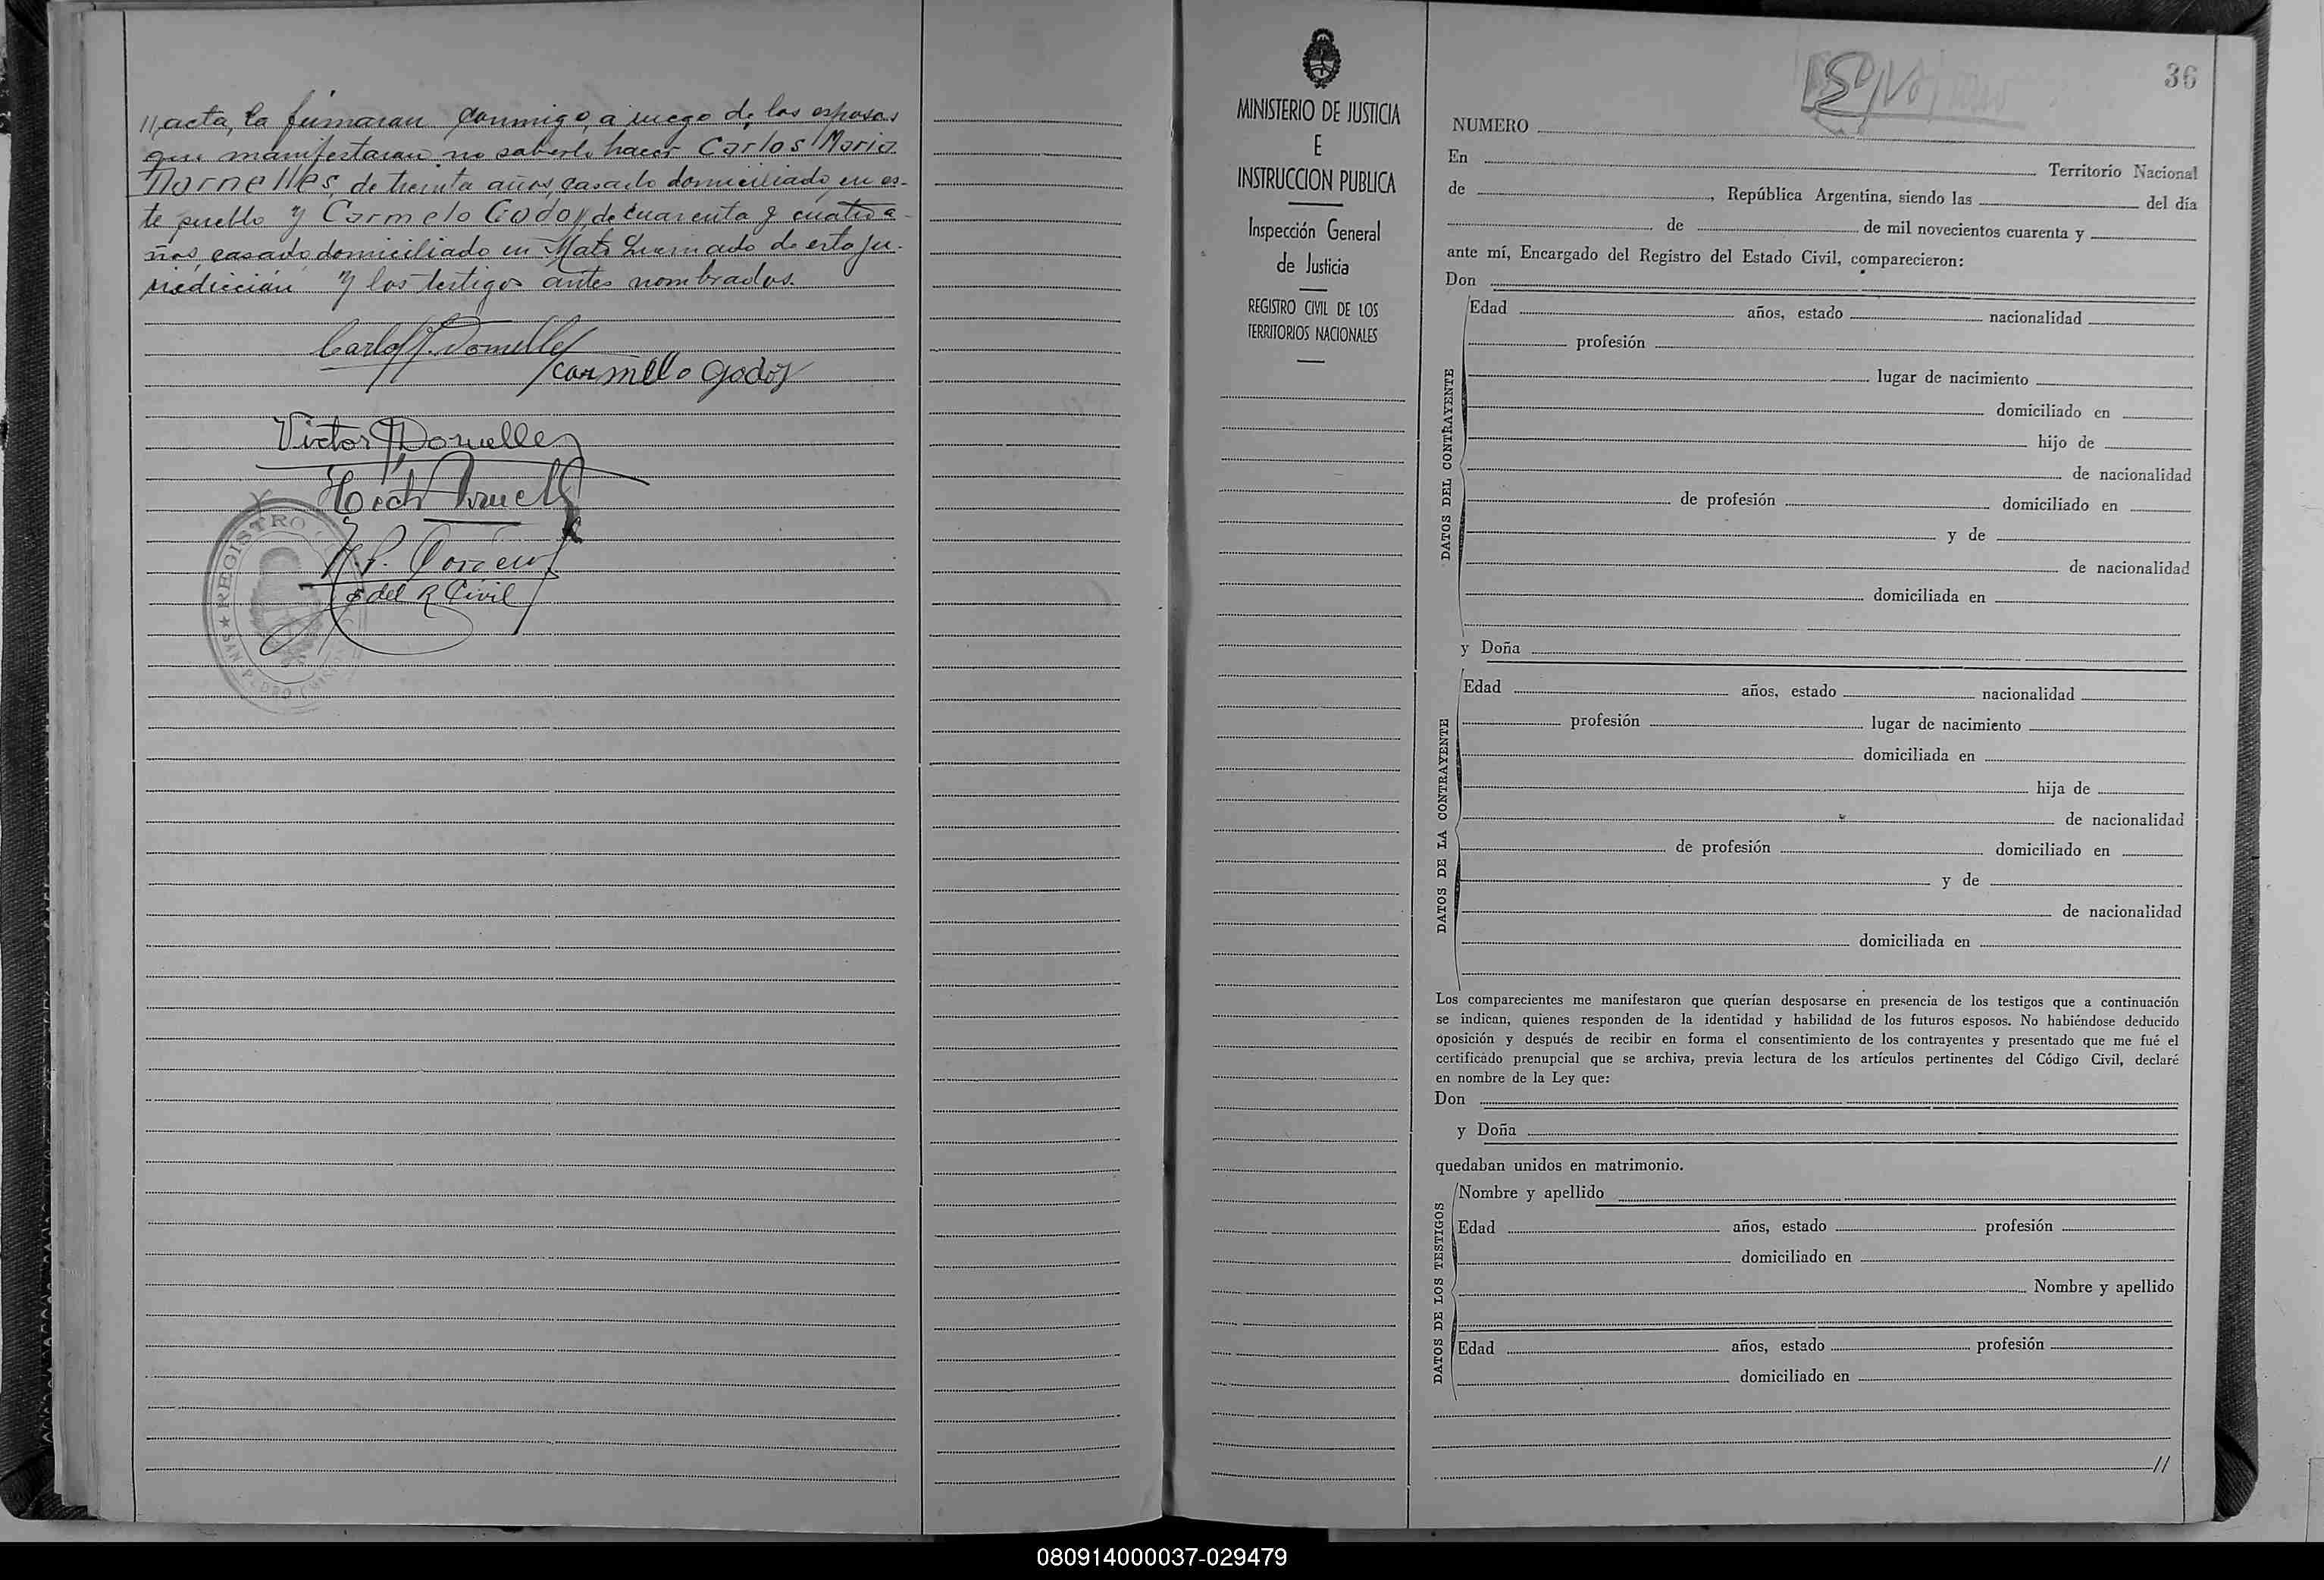 // acta, la firmaran conmigo, a ruego de los esposos
que manifestaran no saberlo hacer Carlos Mario
Dornelles, de treinta años, casado domiciliado en es-
te pueblo y Carmelo Godoy, de cuarenta y cuatro a-
ños, casado, domiciliado en Mato Quemado de esta ju-
risdiccion y los testigos antes nombrados.
Carlos M. Dornelles
Carmelo Godoy
Victor Dornelles
del R Civil
REGISTRO
SAN PEDRO
MINISTERIO DE JUSTICIA
E
INSTRUCCION PUBLICA
Inspección General
de Justicia
REGISTRO CIVIL DE LOS
TERRITORIOS NACIONALES
36
NUMERO
En Territorio Nacional
de , República Argentina, siendo las del día
de de mil novecientos cuarenta y
ante mí, Encargado del Registro del Estado Civil, comparecieron:
Don
DATOS DEL CONTRAYENTE
Edad años, estado nacionalidad
profesión
lugar de nacimiento
domiciliado en
hijo de
de nacionalidad
de profesión domiciliado en
y de
de nacionalidad
domiciliada en
y Doña
DATOS DE LA CONTRAYENTE
Edad años, estado nacionalidad
profesión lugar de nacimiento
domiciliada en
hija de
de nacionalidad
de profesión domiciliado en
y de
de nacionalidad
domiciliada en
Los comparecientes me manifestaron que querían desposarse en presencia de los testigos que a continuación
se indican, quienes responden de la identidad y habilidad de los futuros esposos. No habiéndose deducido
oposición y después de recibir en forma el consentimiento de los contrayentes y presentado que me fué el
certificado prenupcial que se archiva, previa lectura de los artículos pertinentes del Código Civil, declaré
en nombre de la Ley que:
Don
y Doña
quedaban unidos en matrimonio.
DATOS DE LOS TESTIGOS
Nombre y apellido
Edad años, estado profesión
domiciliado en
Nombre y apellido
Edad años, estado profesión
domiciliado en
//
080914000037-029479